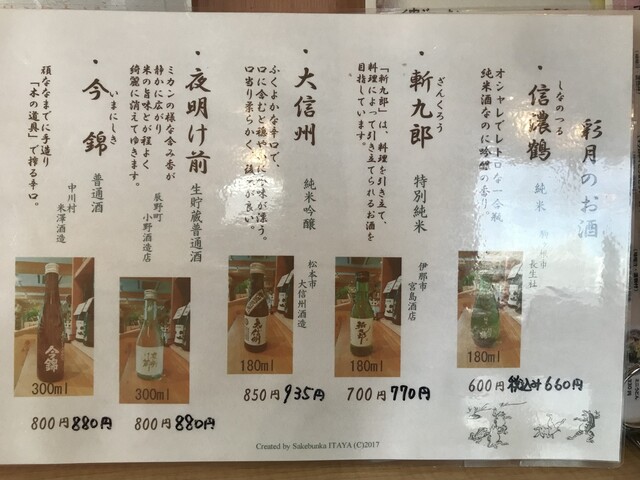 彩月のお酒
しなのつる
・信濃鶴 純米
長生社
オシャレでレトロな一合瓶
純米酒なのに吟醸の香り。
180ml
600円 税込み660円
ざんくろう
・斬九郎 特別純米
伊那市
宮島酒店
「斬九郎」は、料理を引き立て、
料理によって引き立てられるお酒を
目指しています。
180ml
700円 770円
・大信州 純米吟醸
松本市
大信州酒造
ふくよかな辛口で、
口に含むと穏やかに味が漂う。
口当り柔らかく
180ml
850円 935円
・夜明け前 生貯蔵普通酒
辰野町
小野酒造店
ミカンの様な含み香が
静かに広がり
米の旨味とが程よく
綺麗に消えてゆきます。
300ml
800円 880円
いまにしき
・今錦 普通酒
中川村
米澤酒造
頑ななまでに手造り
「木の道具」で搾る辛口。
300ml
800円 880円
Created by Sakebunka ITAYA (C)2017